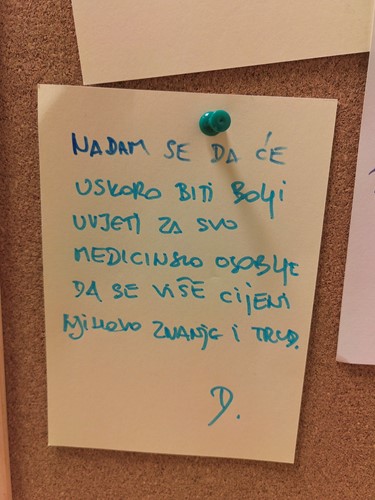 NADAM SE DA ĆE
USKORO BITI BOLJI
UVJETI ZA SVO
MEDICINSKO OSOBLJE
DA SE VIŠE CIJENI
NJIHOVO ZNANJE I TRUD.
D.